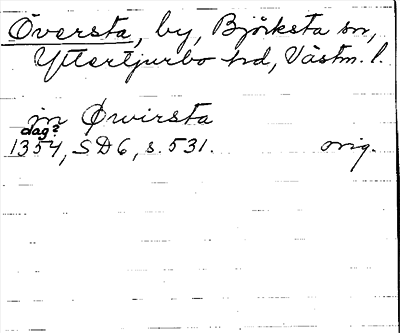 Översta, by, Björksta sn,
Yttertjurbo hd, Västm. l.
in Ørwirsta
dag?
1354, SD6, s. 531. orig.